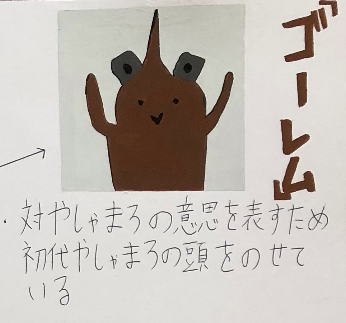 ゴーレム
・対やしゃまろの意思を表すため
初代やしゃまろの頭をのせて
いる